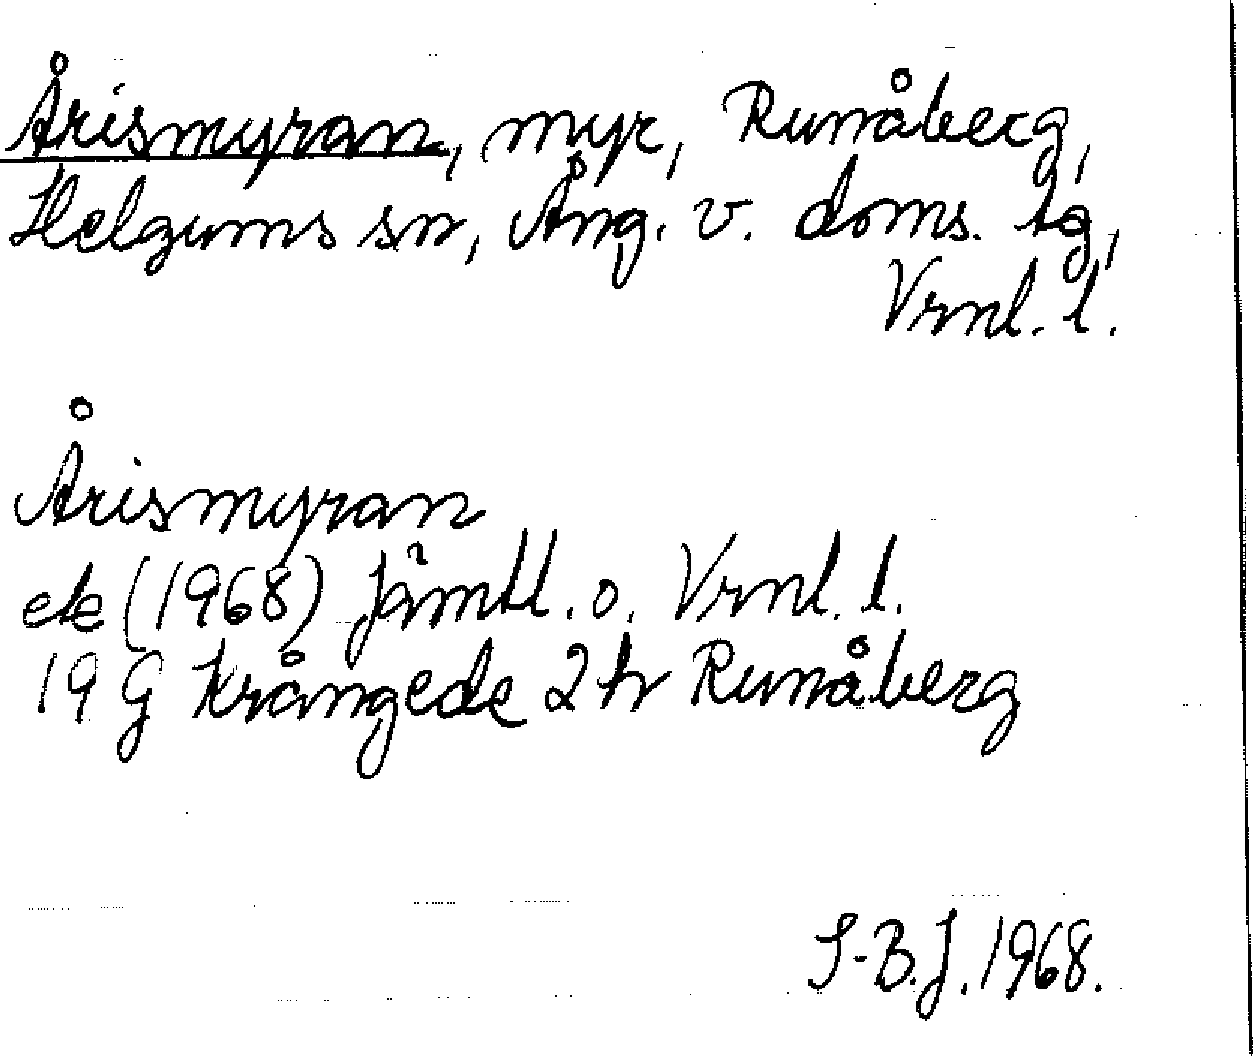 Årismyran, myr, Runåberg,
Helgums sn, Ång. v. doms. tg,
Vrnl. l.
Årismyran
ek (1968) Jämtl. o. Vrnl. l.
19 G Krångede 2 h Runåberg
S-B.J. 1968.